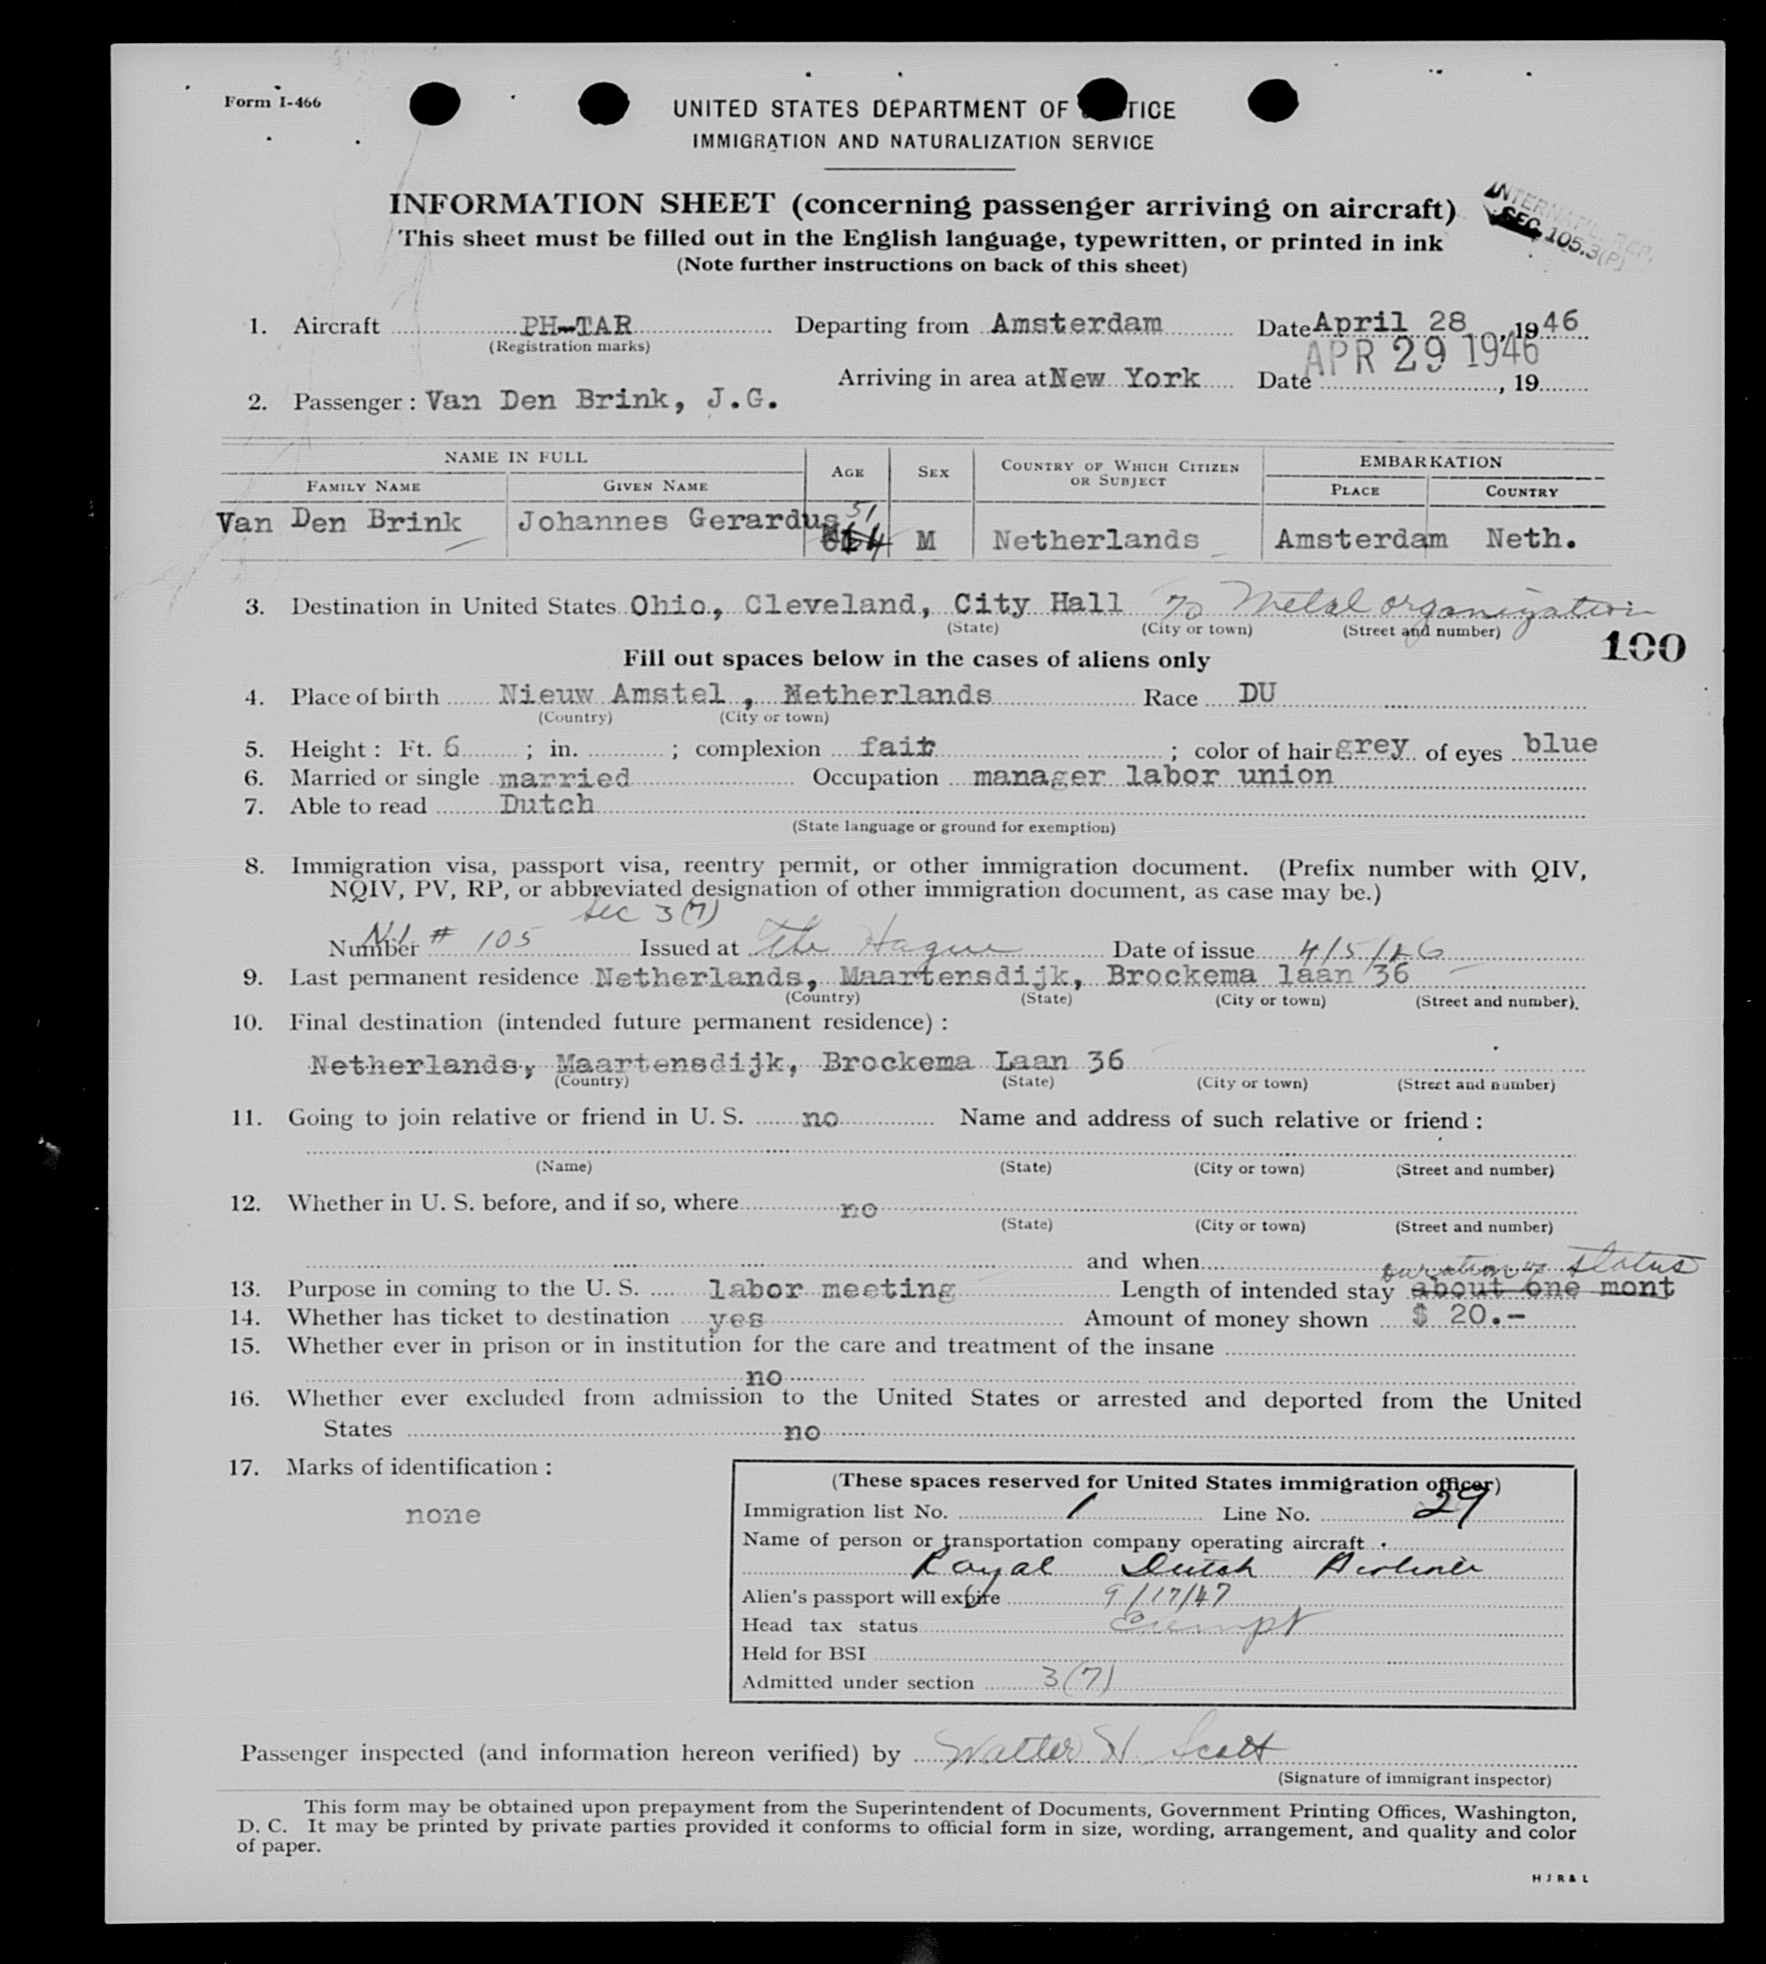 Form I-466
UNITED STATES DEPARTMENT OF TICE
IMMIGRATION AND NATURALIZATION SERVICE
INFORMATION SHEET (concerning passenger arriving on aircraft)
This sheet must be filled out in the English language, typewritten, or printed in ink
(Note further instructions on back of this sheet)
SEC. 105.3(P)
1. Aircraft PH-TAR Departing from Amsterdam Date April 28, 1946
(Registration marks)
APR 29 1946
Arriving in area at New York Date , 19
2. Passenger: Van Den Brink, J.G.
NAME IN FULL AGE SEX COUNTRY OF WHICH CITIZEN OR SUBJECT EMBARKATION
FAMILY NAME GIVEN NAME PLACE COUNTRY
Van Den Brink Johannes Gerardus 51 M Netherlands Amsterdam Neth.
3. Destination in United States Ohio, Cleveland, City Hall % Metal organization
(State) (City or town) (Street and number)
100
Fill out spaces below in the cases of aliens only
4. Place of birth Nieuw Amstel, Netherlands Race DU
(Country) (City or town)
5. Height: Ft. 6 ; in. ; complexion fair ; color of hair grey of eyes blue
6. Married or single married Occupation manager labor union
7. Able to read Dutch
(State language or ground for exemption)
8. Immigration visa, passport visa, reentry permit, or other immigration document. (Prefix number with QIV,
NQIV, PV, RP, or abbreviated designation of other immigration document, as case may be.)
Sec 3(7)
Number # 105 Issued at The Hague Date of issue 4/5/46
9. Last permanent residence Netherlands, Maartensdijk, Brockema laan 36
(Country) (State) (City or town) (Street and number).
10. Final destination (intended future permanent residence):
Netherlands, Maartensdijk, Brockema Laan 36
(Country) (State) (City or town) (Street and number)
11. Going to join relative or friend in U. S. no Name and address of such relative or friend:
(Name) (State) (City or town) (Street and number)
12. Whether in U. S. before, and if so, where no
(State) (City or town) (Street and number)
and when
duration of status
13. Purpose in coming to the U. S. labor meeting Length of intended stay about one mont
14. Whether has ticket to destination yes Amount of money shown $ 20.-
15. Whether ever in prison or in institution for the care and treatment of the insane
no
16. Whether ever excluded from admission to the United States or arrested and deported from the United
States no
17. Marks of identification:
none
(These spaces reserved for United States immigration officer)
Immigration list No. 1 Line No. 29
Name of person or transportation company operating aircraft
Royal Dutch Airlines
Alien's passport will expire 9/17/47
Head tax status Exempt
Held for BSI
Admitted under section 3(7)
Passenger inspected (and information hereon verified) by Walter H. Scott
(Signature of immigrant inspector)
This form may be obtained upon prepayment from the Superintendent of Documents, Government Printing Offices, Washington,
D. C. It may be printed by private parties provided it conforms to official form in size, wording, arrangement, and quality and color
of paper.
HJR&L